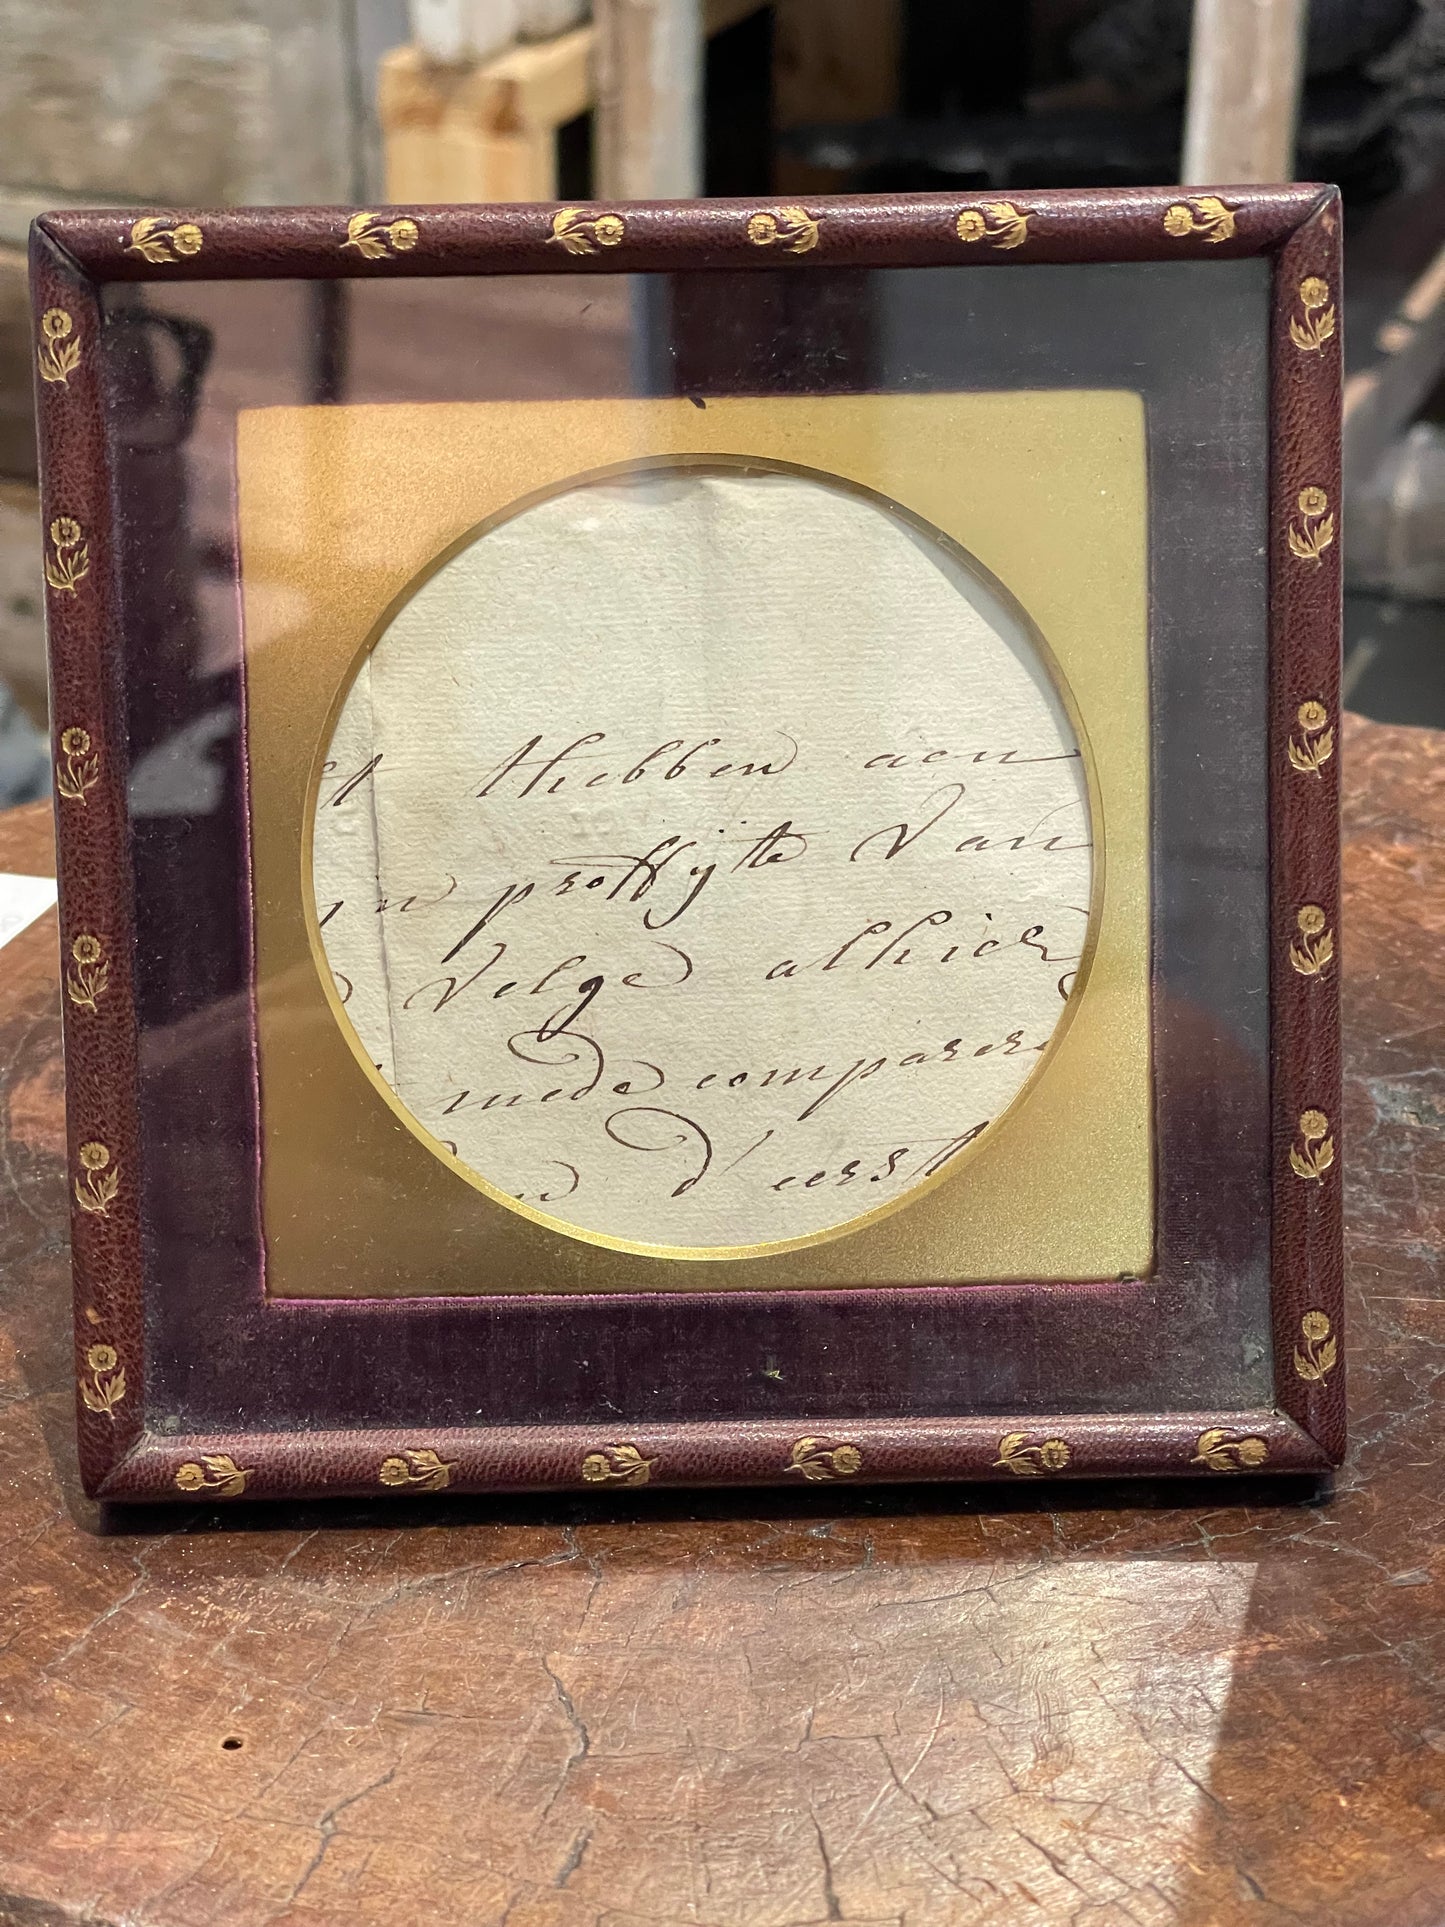 thebben aen
proffyte van
volge alhier
mede comparere
d'eerst